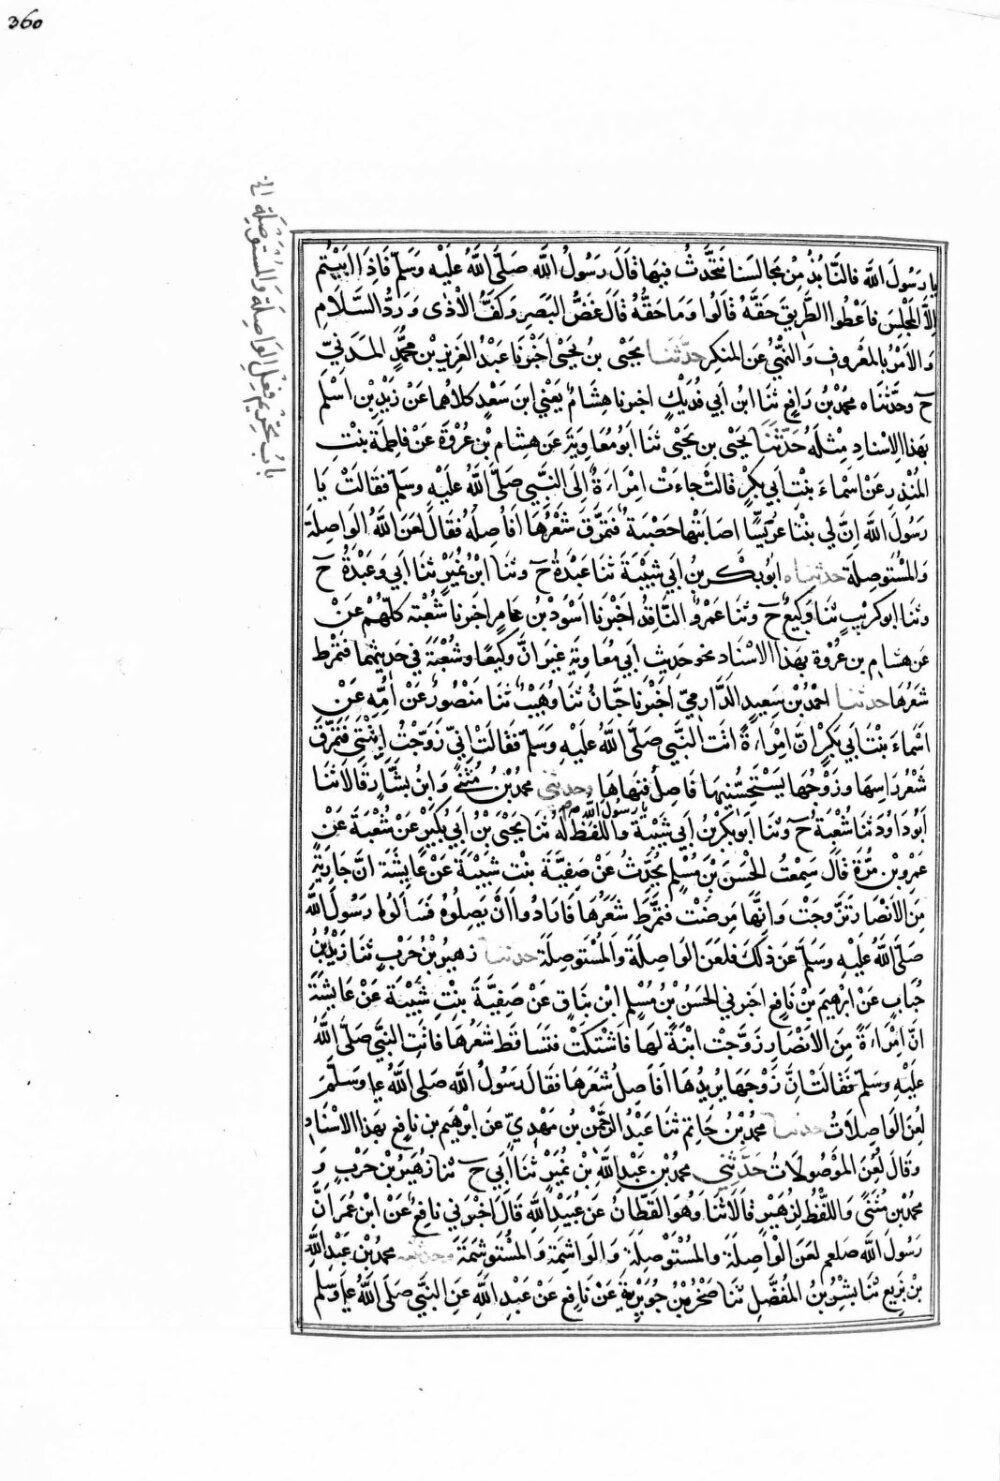 360
باب تحريم فعل الواصلة والمستوصلة الخ
يا رسول الله فالنا بُدٌّ مِنْ مجالسنا نتحَدَّث فيها قالَ رسُولُ الله صلّى اللهُ عليْهِ وسَلّم فاِذا ابيْتُم
اِلاَّ المجْلِسَ فاَعْطوا الطَّريقَ حَقَّهُ قالُوا وَمَا حَقُّهُ قالَ غضُّ البَصَرِ وَكفُّ الْاذى وَرَدُّ السَّلَامِ
وَالاَمْرُ بالمعْروفِ وَالنَّهْيُ عَنِ المنكِرِ حدّثنا يَحْيى بن يَحْيى اخْبَرنَا عَبْدُ العَزيز بْن محمَّدٍ المدَنيّ
ح وحدَّثنَاه محمدُ بْنُ رَافِعٍ ثنا ابن أبي فُدَيْكٍ اخبرنا هِشَامٌ يَعْني ابن سَعْدٍ كلاهُما عَن زَيدِ بْنِ اسْلَم
بهذا الاِسْنادِ مِثْلَهُ حَدّثنَا يَحْيى بن يَحْيى ثنا ابو مُعَاوِيَةَ عَن هِشامِ بْنِ عُرْوَةَ عَنْ فاطِمَةَ بنْتِ
المُنْذِرِ عَنْ اسْماءَ بنْت ابي بكْرٍ قالت جاءَتْ امْرَاَةٌ الَى النَّبي صَلّى اللهُ عليْهِ وسَلّم فقالَتْ يَا
رسُولَ الله اِنَّ لي بنْتًا عرَيّسًا اصَابَتْها حَصْبَة فتَمرَّقَ شَعْرُهَا اَفاَصِلُه فقالَ لعَنَ اللهُ الوَاصِلَة
وَالمُسْتَوصِلَة حدثناه ابُو بكر بن ابي شَيْبَة ثنا عَبْدَةُ ح وثنا ابْنُ نُمَيْرٍ ثنا أبي وعَبْدَةُ ح
وثنا ابو كريْبٍ ثنا وَكيعٌ ح وثنا عَمْرٌو النَّاقِدُ اخْبَرنا اسْوَدُ بْنُ عَامِرٍ اخبرنا شُعْبَة كلّهُم عَنْ
عَن هشامِ بن عُرْوَة بهَذا الاسْنَاد نحو حَديث ابي مُعَاويَة غيْرَ انَّ وَكيعًا وشُعْبَة في حَديثهِما فتَمَرَّط
شَعْرُهَا حدثنا احمدُ بْنُ سَعيدٍ الدَّارِميّ اخْبَرنا حَبَّانُ ثنا وُهَيْبٌ ثنا مَنْصُورٌ عَنْ اُمِّه عَنْ
اسْمَاءَ بنْت ابي بَكْرٍ انَّ امْرَاَةً اتَت النَّبي صَلّى اللهُ عليْه وسَلّم فقالَت اِنّي زَوَّجْتُ ابْنَتي فتَمَرَّقَ
شَعْرُ رَاسِهَا وزَوْجُها يَسْتَحْسِنُيهَا فاَصِلُ فنَهاهَا وحدثني محمدُ بْنُ مُثَنّى وَابنُ بشَّارٍ قالا ثنا
يا رسول الله
ابُو دَاوُدَ ثنا شعْبَةُ ح وثنا ابو بكْرِ بْنُ ابي شَيْبَة وَاللفظُ لهُ ثنا يَحْيَى بْنُ ابي بُكَيْرٍ عَنْ شُعْبَةَ عَنْ
عَمرِو بْنِ مُرَّة قالَ سَمِعْتُ الحْسَنَ بْنَ مُسْلِمٍ يُحَدِّثُ عَنْ صَفيَّة بنْت شَيْبَةَ عَنْ عايشَة انَّ جاريَة
مِنَ الاَنْصَار تَزَوَّجَتْ وَانَّهَا مَرِضَتْ فتَمَرَّط شَعَرُهَا فاَرَادُوا اَنْ يَصِلُوهُ فسَاَلوا رسُولَ اللهِ
صَلّى اللهُ عليْهِ وسَلّمَ عَن ذلكَ فلعَنَ الوَاصِلَة وَالمسْتَوصِلَة حدثنا زهيرُ بْنُ حَرْبٍ ثنا زَيْدُ بْنُ
حُبَابٍ عَنْ ابْرهيمَ بْنِ نَافِعٍ اخبرني الحسَنُ بْنُ مُسْلِمٍ ابْنِ يَنَاقٍ عَنْ صَفِيَّةَ بنْتِ شَيْبَة عَنْ عَايشَةَ
انّ امْرَاَةً مِنَ الاَنْصَار زَوَّجَت ابْنَةً لهَا فاشْتكَتْ فتَسَاقَط شعَرُهَا فاَتَتِ النبَّي صَلّى اللهُ
عليْهِ وسَلّمَ فقالَت انَّ زَوْجَها يُريدُها اَفاَصِلُ شعَرَهَا فقالَ رسُولُ الله صَلى اللهُ عليه وسَلّمَ
لعِنَ الوَاصِلاَتُ حدثنا محمدُ بْنُ حَاتِمٍ ثنا عَبْدُ الرَّحْمٰن بن مَهْديٍّ عَن ابْرهيم بن نافِعٍ بهَذا الاسْنادِ
وَقالَ لُعِنَ المَوْصُولَاتُ حَدَّثني محمدُ بن عَبْدِ اللهِ بْنِ نُمَيْرٍ ثنا أبي ح ثنا زُهَيرُ بْنُ حَرْبٍ وَ
محمدُ بْنُ مُثَنّى وَاللّفظُ لِزُهَيْرٍ قالاَ ثنا وَهُوَ القَطّانُ عَن عُبَيْدِ اللهِ قالَ اخْبَرني نَافِعٌ عَنْ ابْن عُمَرَ انَّ
رَسُولَ الله صلعم لعَنَ الْوَاصِلَةَ والمُسْتَوْصِلَةَ وَالوَاشِمَةَ وَالمُسْتَوْشِمَةَ محمدُ بْنُ عَبْدِ اللهِ
بْنِ بَزِيعٍ ثنا بشْرُ بْنُ المُفَضَّلِ ثنا صَخْرُ بْنُ جُوَيْرِيَةَ عَنْ نَافِعٍ عَنْ عَبْدِ اللهِ عَنِ النَّبي صَلَى اللهُ عليه وسَلم